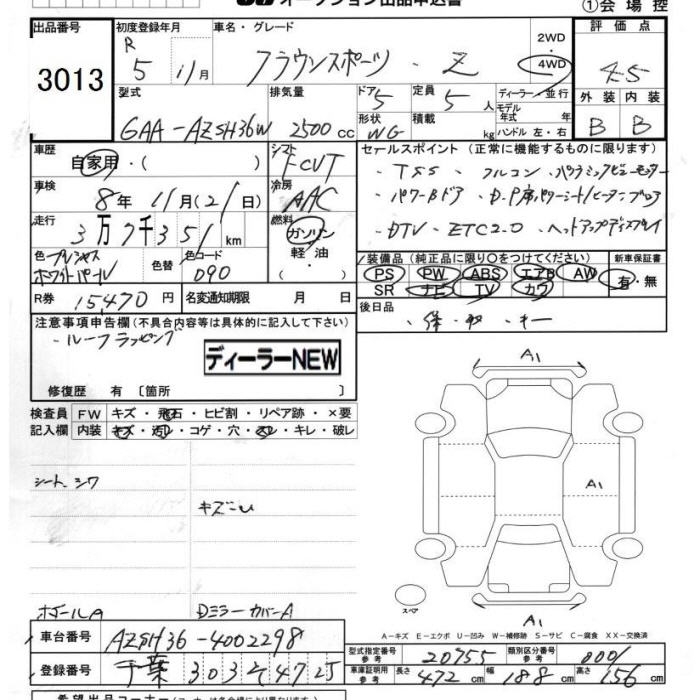 オークション出品申込書 ①会場控
出品番号 初度登録年月 車名・グレード 評価点
3013 R 5 11月 クラウンスポーツ・Z 2WD 4WD 4.5
型式 排気量 ドア 定員 ディーラー・並行 外装 内装
GAA-AZSH36W 2500cc 5 5人 モデル年式 年式 B B
形状 WG 積載 kg ハンドル 左・右
車歴 シフト セールスポイント (正常に機能するものに限ります)
自家用・( ) FCVT ・TSS ・フルコン・パノラミックビューモニター
車検 8年 11月(21日) 冷房 AAC ・パワーBドア・D.P席パワーシート/ヒーター・ブロア
走行 3万7千351km 燃料 ガソリン・軽油・ ・DTV・ETC2.0・ヘッドアップディスプレイ
色 プレシャスホワイトパール 色替 色コード 090 装備品 (純正品に限り○をつけてください) 新車保証書
PS PW ABS エアB AW 有・無
SR ナビ TV カワ
R券 15470円 名変通知期限 月 日 後日品
注意事項申告欄(不具合内容等は具体的に記入して下さい) ・保・取・キー
・ルーフラッピング
ディーラーNEW
修復歴 有 〔箇所 〕
検査員 FW キズ・飛石・ヒビ割・リペア跡・×要
記入欄 内装 キズ・汚れ・コゲ・穴・スレ・キレ・破レ
A1
シート、シワ
キズ〜U
A1
スペア
ホイールA DミラーカバーA
A1
A-キズ E-エクボ U-凹み W-補修跡 S-サビ C-腐食 XX-交換済
車台番号 AZSH36-4002298
型式指定番号 参考 20755 類別区分番号 参考 0001
登録番号 千葉 303 そ 4725 車庫証明用 参考 長さ 472cm 幅 188cm 高さ 156cm
希望出品コーナー